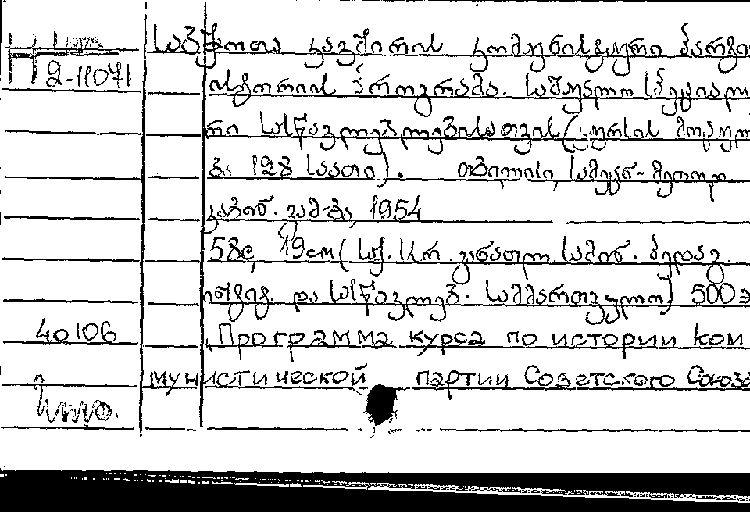 საბჭოთა კავშირის კომუნისტური პარტი
2-11071
ისტორიის პროგრამა. საშუალო სპეციალ
რი სასწავლებლებისათვის (კურსის მოცულ
ბა 128 საათი). თბილისი, სამეცნ-მეთოდ.
კაბინ. გამ-ბა, 1954
58გ, 19см (საქ. სსრ. განათლ. სამინ. პედაგ.
ინსტიტ. და სასწავლებ. სამმართველო) 500 ე
40106 Программа курса по истории ком
мунистической партии Советского Союза